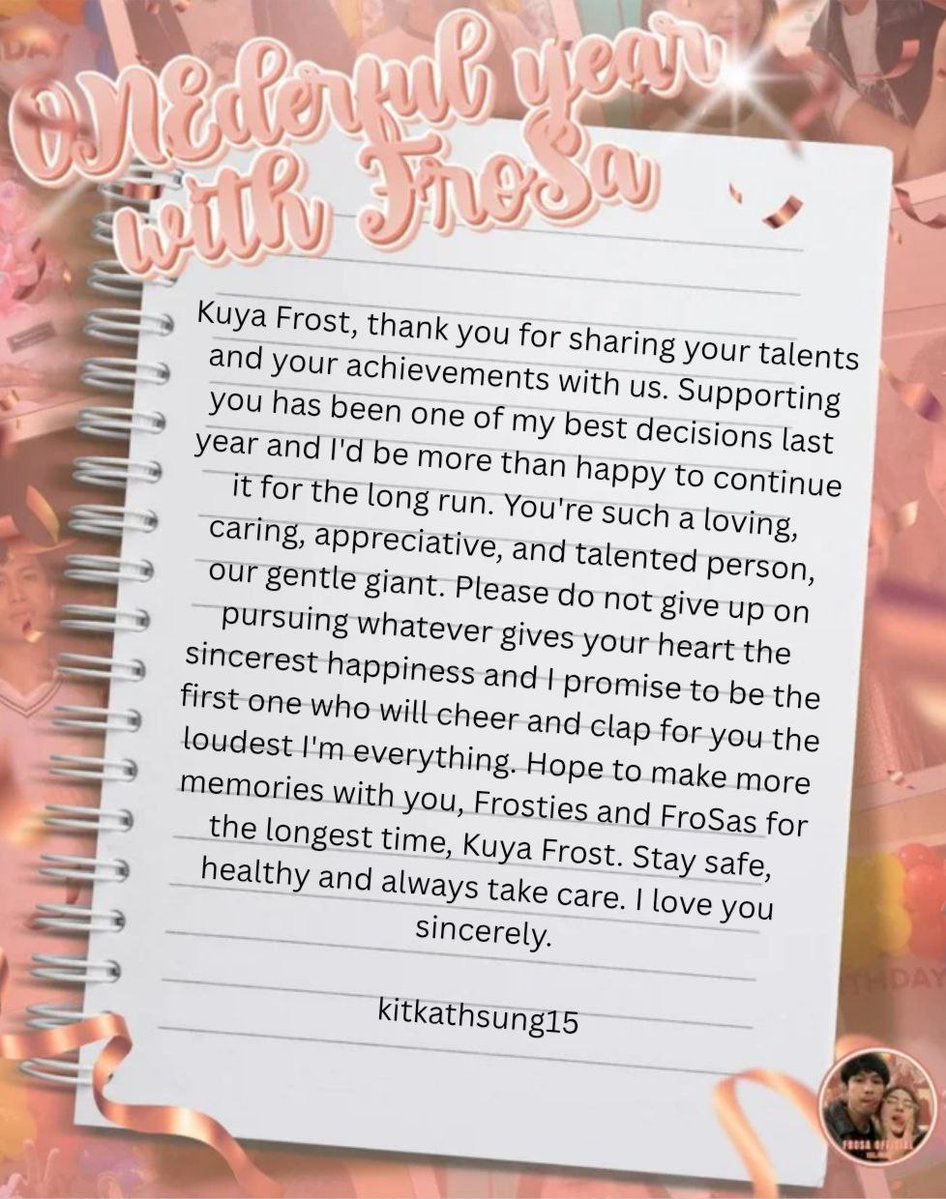 ONEderful year
with FroSa
Kuya Frost, thank you for sharing your talents
and your achievements with us. Supporting
you has been one of my best decisions last
year and I'd be more than happy to continue
it for the long run. You're such a loving,
caring, appreciative, and talented person,
our gentle giant. Please do not give up on
pursuing whatever gives your heart the
sincerest happiness and I promise to be the
first one who will cheer and clap for you the
loudest I'm everything. Hope to make more
memories with you, Frosties and FroSas for
the longest time, Kuya Frost. Stay safe,
healthy and always take care. I love you
sincerely.
kitkathsung15
THDAY
FROSA OFFICIAL